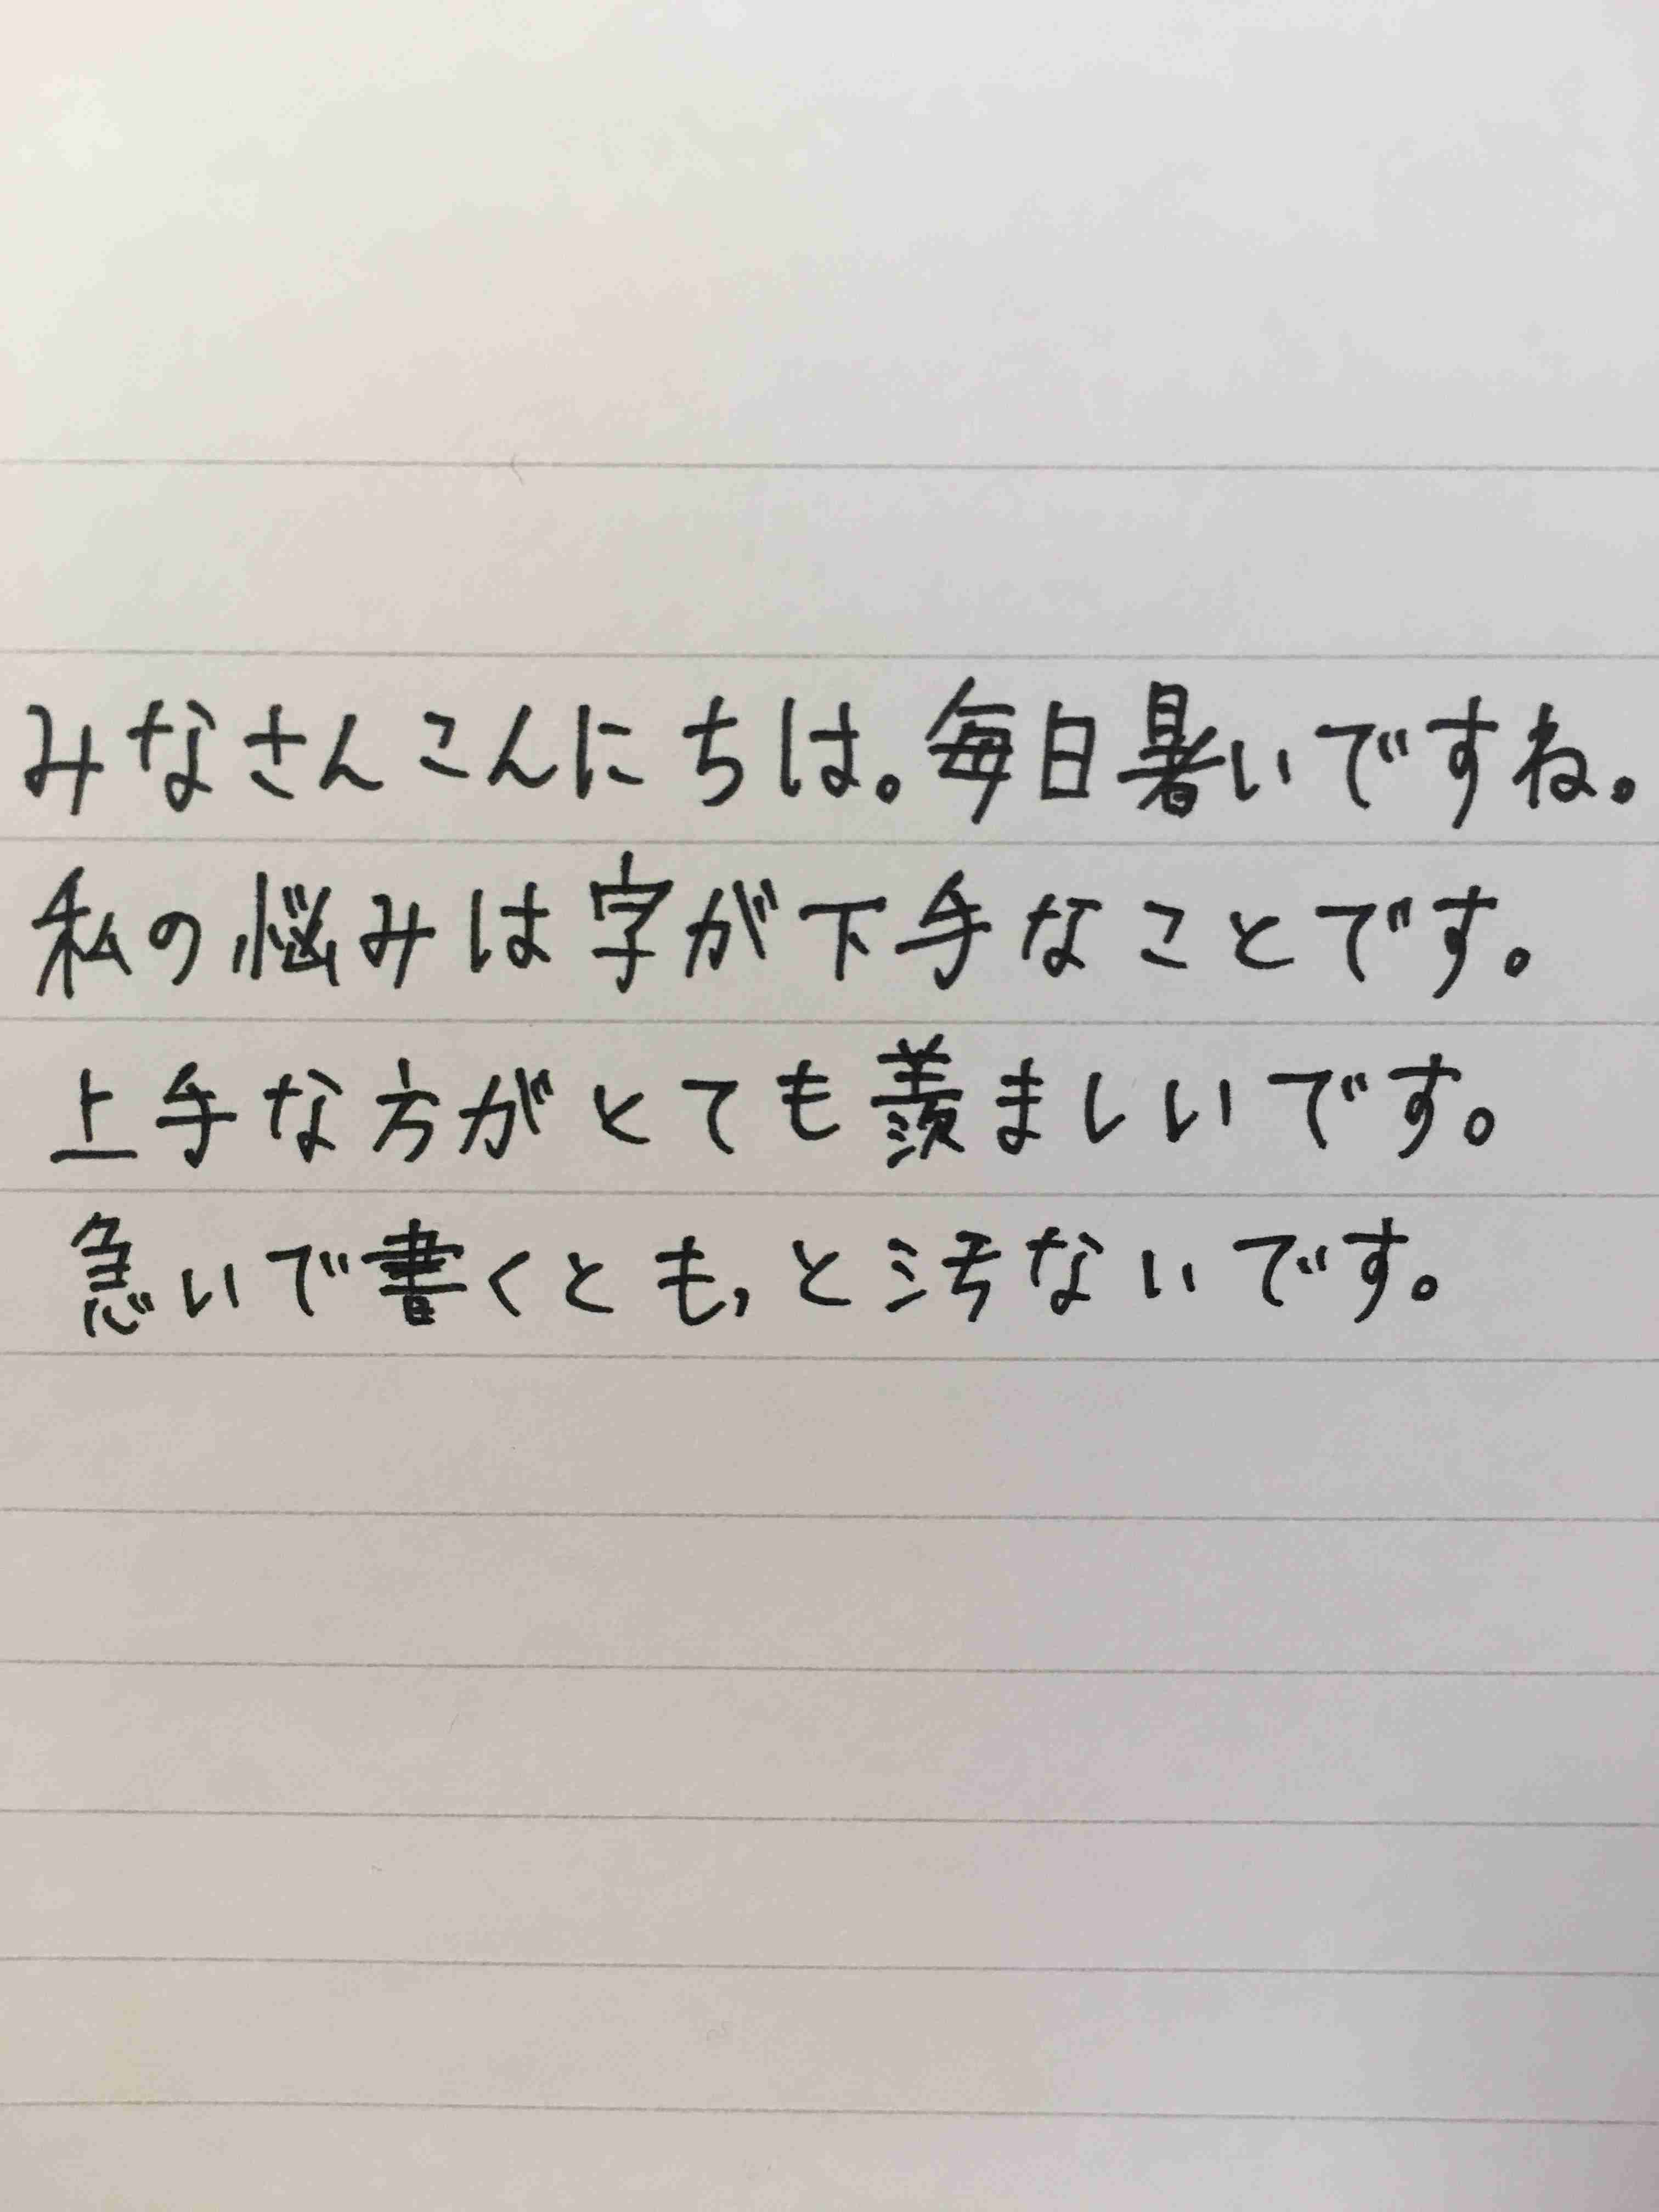 みなさんこんにちは。毎日暑いですね。
私の悩みは字が下手なことです。
上手な方がとても羨ましいです。
急いで書くともっと汚ないです。